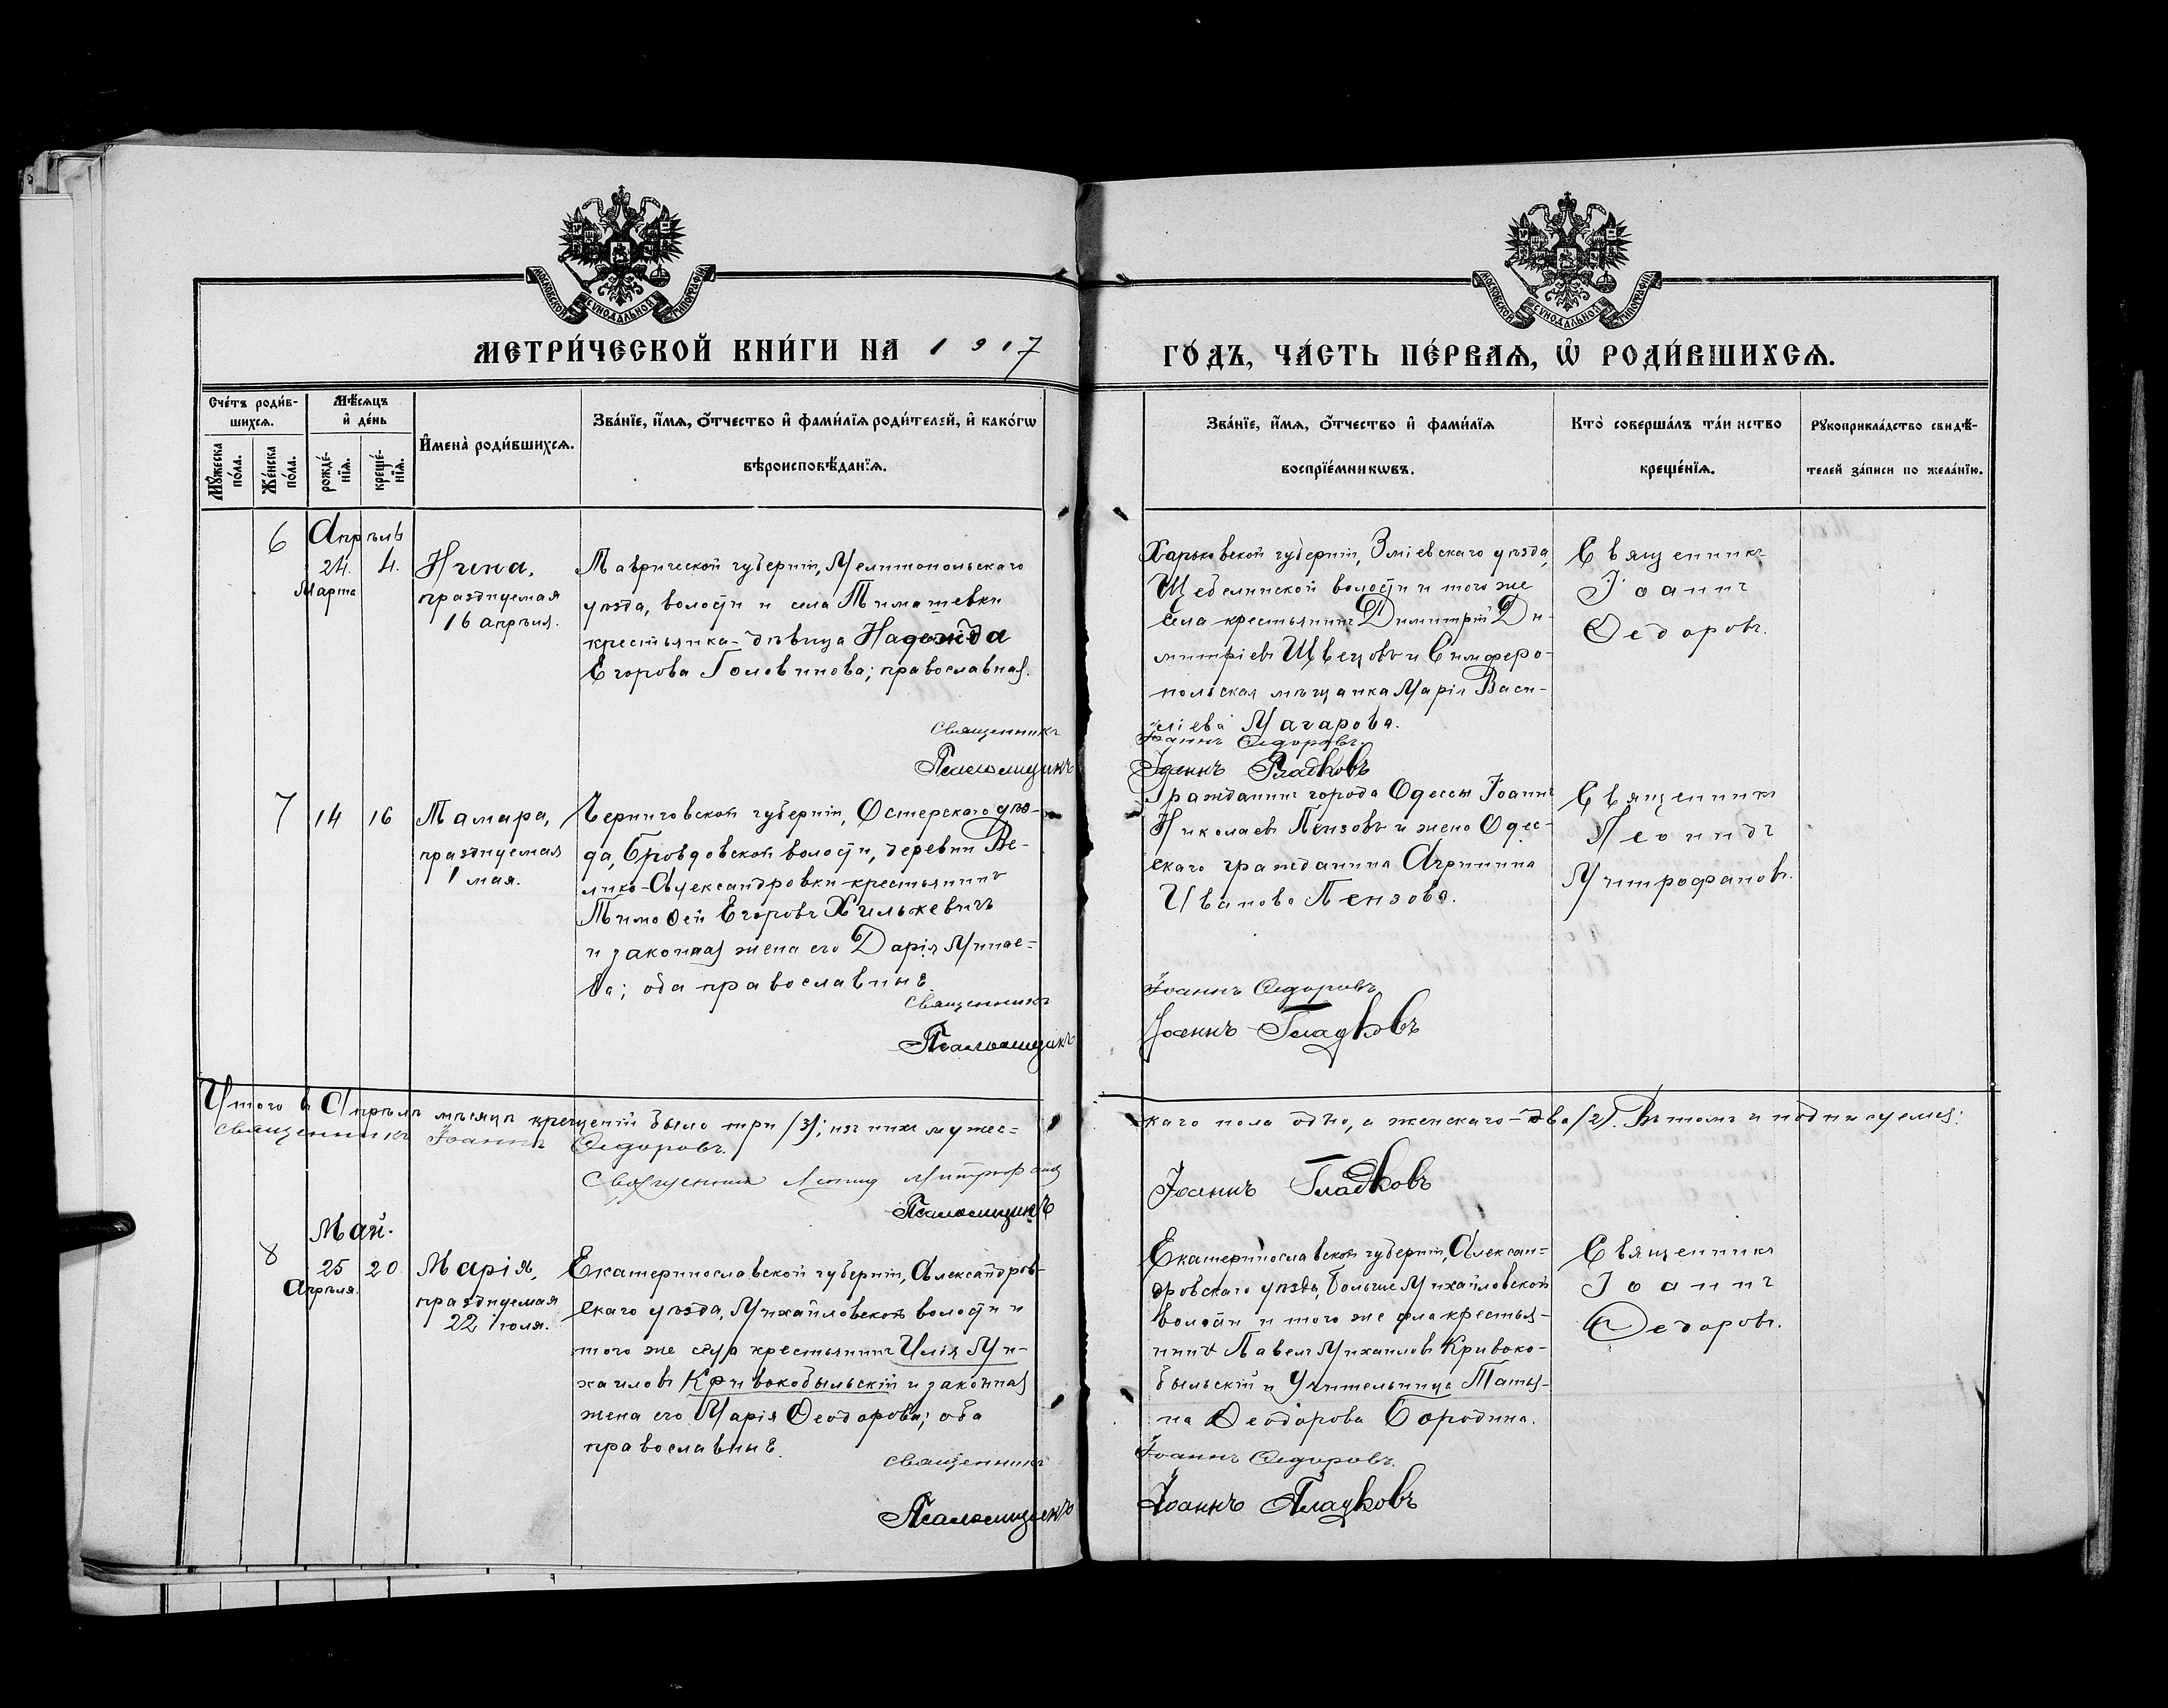 МОСКОВСКОЙ СѴНОДАЛЬНОЙ ТИПОГРАФІИ
МОСКОВСКОЙ СѴНОДАЛЬНОЙ ТИПОГРАФІИ
МЕТРИ́ЧЕСКОЙ КНИ́ГИ НА 1917
ГО́ДЪ, ЧА́СТЬ ПЕ́РВАѦ, Ѡ҆ РОДИ́ВШИХСѦ.
Сче́тъ роди́в-
шихсѧ.
Мѣ́сѧцъ
и҆ де́нь
Мꙋ́жеска
по́ла.
Же́нска
по́ла.
рожде́-
нїѧ.
креще́-
нїѧ.
И҆мена̀ роди́вшихсѧ.
Зва́нїе, и҆́мѧ, ѻ҆́тчество и҆ фами́лїѧ роди́телей, и҆ како́гѡ
вѣроисповѣ́данїѧ.
Зва́нїе, и҆́мѧ, ѻ҆́тчество и҆ фами́лїѧ
воспрїе́мникѡвъ.
Кто̀ соверша́лъ та́инство
креще́нїѧ.
Рꙋкоприкла́дство свидѣ́-
телей за́писи по жела́нїю.
6
Апрѣль
24. 4.
Марта
Нина,
празднуемая
16 апрѣля.
Таврической губерніи, Мелитопольскаго
уѣзда, волости и села Тимашевки
крестьянка-дѣвица Надежда
Егорова Головинова; православная.
Священникъ
Псаломщикъ
Харьковской губерніи, Зміевскаго уѣзда,
Щебелинской волости и того же
села крестьянинъ Димитрій Ди-
митріевъ Швецовъ и Симферо-
польская мѣщанка Марія Васи-
ліева Мачарова.
Іоаннъ Ѳедоровъ.
Іоаннъ Гладковъ
Священникъ
Іоаннъ
Ѳедоровъ.
7 14 16
Тамара,
празднуемая
1 мая.
Черниговской губерніи, Остерскаго уѣз-
да, Бровдовской волости, деревни Ве-
лико-Александровки крестьянинъ
Тимоѳей Егоровъ Хилькевичъ
и законная жена его Дарія Минае-
ва; оба православные.
Священникъ
Псаломщикъ
Гражданинъ города Одессы Іоаннъ
Николаевъ Пензовъ и жена Одес-
скаго гражданина Агрипина
Иванова Пензова.
Іоаннъ Ѳедоровъ
Іоаннъ Гладковъ
Священникъ
Леонидъ
Митрофановъ.
Итого въ Апрѣлѣ мѣсяцѣ крещеній было три (3); изъ нихъ мужес-
каго пола одно, а женскаго - два (2). Въ томъ и подписуемся:
Священникъ Іоаннъ Ѳедоровъ.
Священникъ Леонид Митрофанов
Псаломщикъ
Іоаннъ Гладковъ
Май.
8
25 20
Апрѣля.
Марія,
празднуемая
22 іюля.
Екатеринославской губерніи, Александров-
скаго уѣзда, Михайловской волости и
того же села крестьянинъ Илія Ми-
хаиловъ Кривокобыльскій и законная
жена его Марія Ѳеодорова; оба
православные.
Священникъ
Псаломщикъ
Екатеринославской губерніи, Алексан-
дровскаго уѣзда, Больше Михайловской
волости и того же села крестья-
нинъ Павелъ Михаиловъ Кривоко-
быльскій и Учительница Татья-
на Ѳеодорова Бородина.
Іоаннъ Ѳедоровъ.
Іоаннъ Гладковъ
Священникъ
Іоаннъ
Ѳедоровъ.